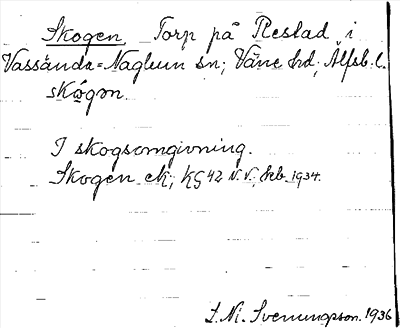 Skogen Torp på Restad i
Vassända=Naglum sn; Väne hd; Älfsb. l.
skógən.
I skogsomgivning.
Skogen ek; KG 42 N.V., Heb. 1934.
S. Ni. Svenungsson. 1936